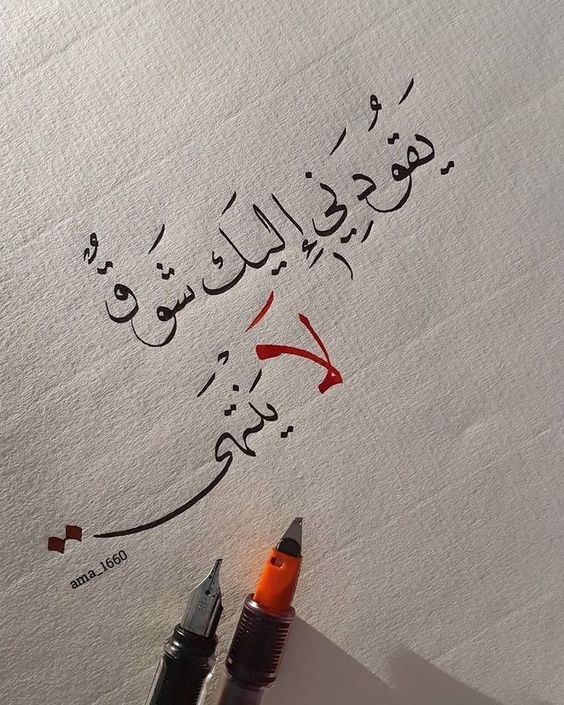 يَقُودُنِي إِلَيْكَ شَوْقٌ
لَا يَنْتَهِي
ama_1660